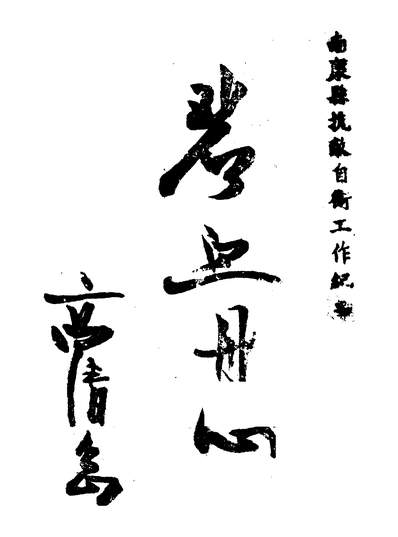 南康縣抗敵自衛工作紀
碧血丹心
高清岳